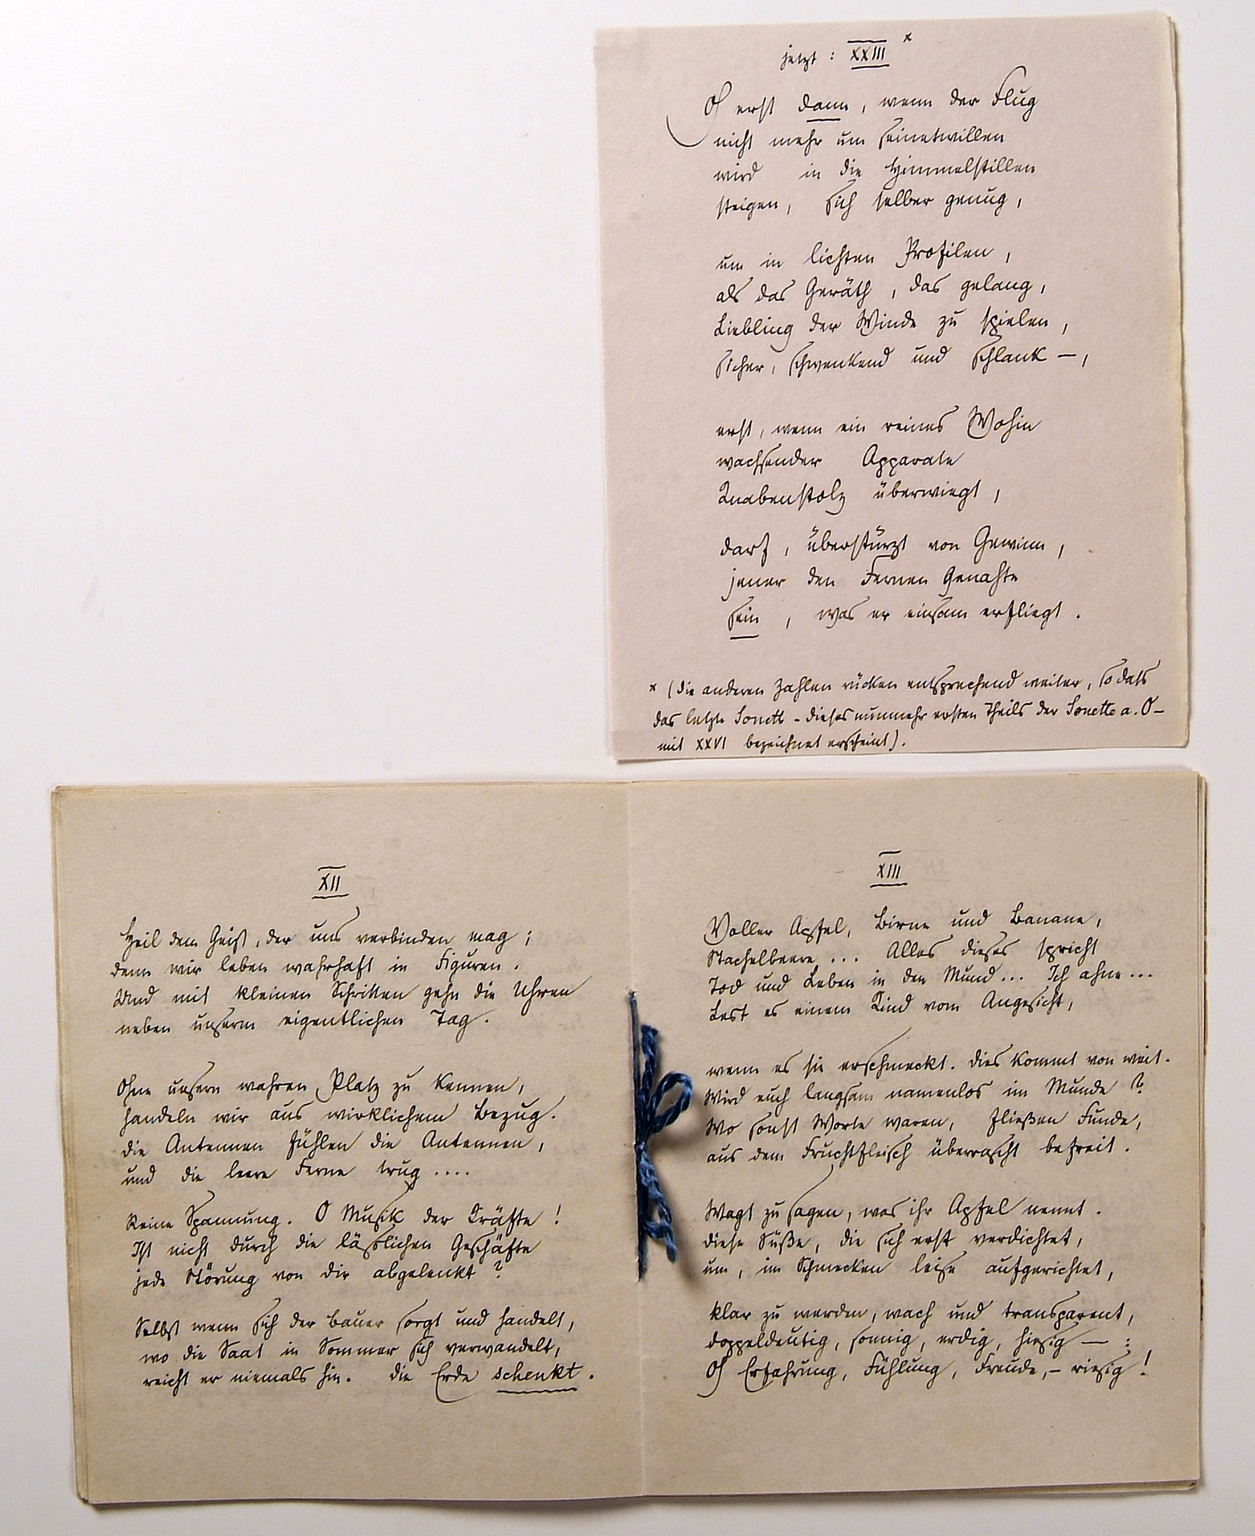 jetzt : XXIII ×
O erst dann, wenn der Flug
nicht mehr um seinetwillen
wird in die Himmelstillen
steigen, sich selber genug,
um in lichten Profilen,
als das Geräth, das gelang,
Liebling der Winde zu spielen,
sicher, schwenkend und schlank —,
erst, wenn ein reines Wohin
wachsender Apparate
Knabenstolz überwiegt,
darf, überstürzt von Gewinn,
jener den Fernen Genahte
sein, was er einsam erfliegt.
× (die anderen Zahlen rücken entsprechend weiter, so dass
das letzte Sonett - dieses nunmehr ersten Theils der Sonette a. O-
mit XXVI bezeichnet erscheint).
XII
Heil dem Geist, der uns verbinden mag;
denn wir leben wahrhaft in Figuren.
Und mit kleinen Schritten gehn die Uhren
neben unserm eigentlichen Tag.
Ohne unsern wahren Platz zu kennen,
handeln wir aus wirklichem Bezug.
die Antennen fühlen die Antennen,
und die leere Ferne trug ....
Reine Spannung. O Musik der Kräfte!
Ist nicht durch die lässlichen Geschäfte
jede Störung von dir abgelenkt?
Selbst wenn sich der Bauer sorgt und handelt,
wo die Saat in Sommer sich verwandelt,
reicht er niemals hin. die Erde schenkt.
XIII
Voller Apfel, Birne und Banane,
Stachelbeere ... Alles dieses spricht
Tod und Leben in den Mund... Ich ahne...
Lest es einem Kind vom Angesicht,
wenn es sie erschmeckt. dies kommt von weit.
Wird euch langsam namenlos im Munde?
Wo sonst Worte waren, fließen Funde,
aus dem Fruchtfleisch überrascht befreit.
Wagt zu sagen, was ihr Apfel nennt.
diese Süße, die sich erst verdichtet,
um, im Schmecken leise aufgerichtet,
klar zu werden, wach und transparent,
doppeldeutig, sonnig, erdig, hiesig — :
O Erfahrung, Fühlung, Freude, – riesig!